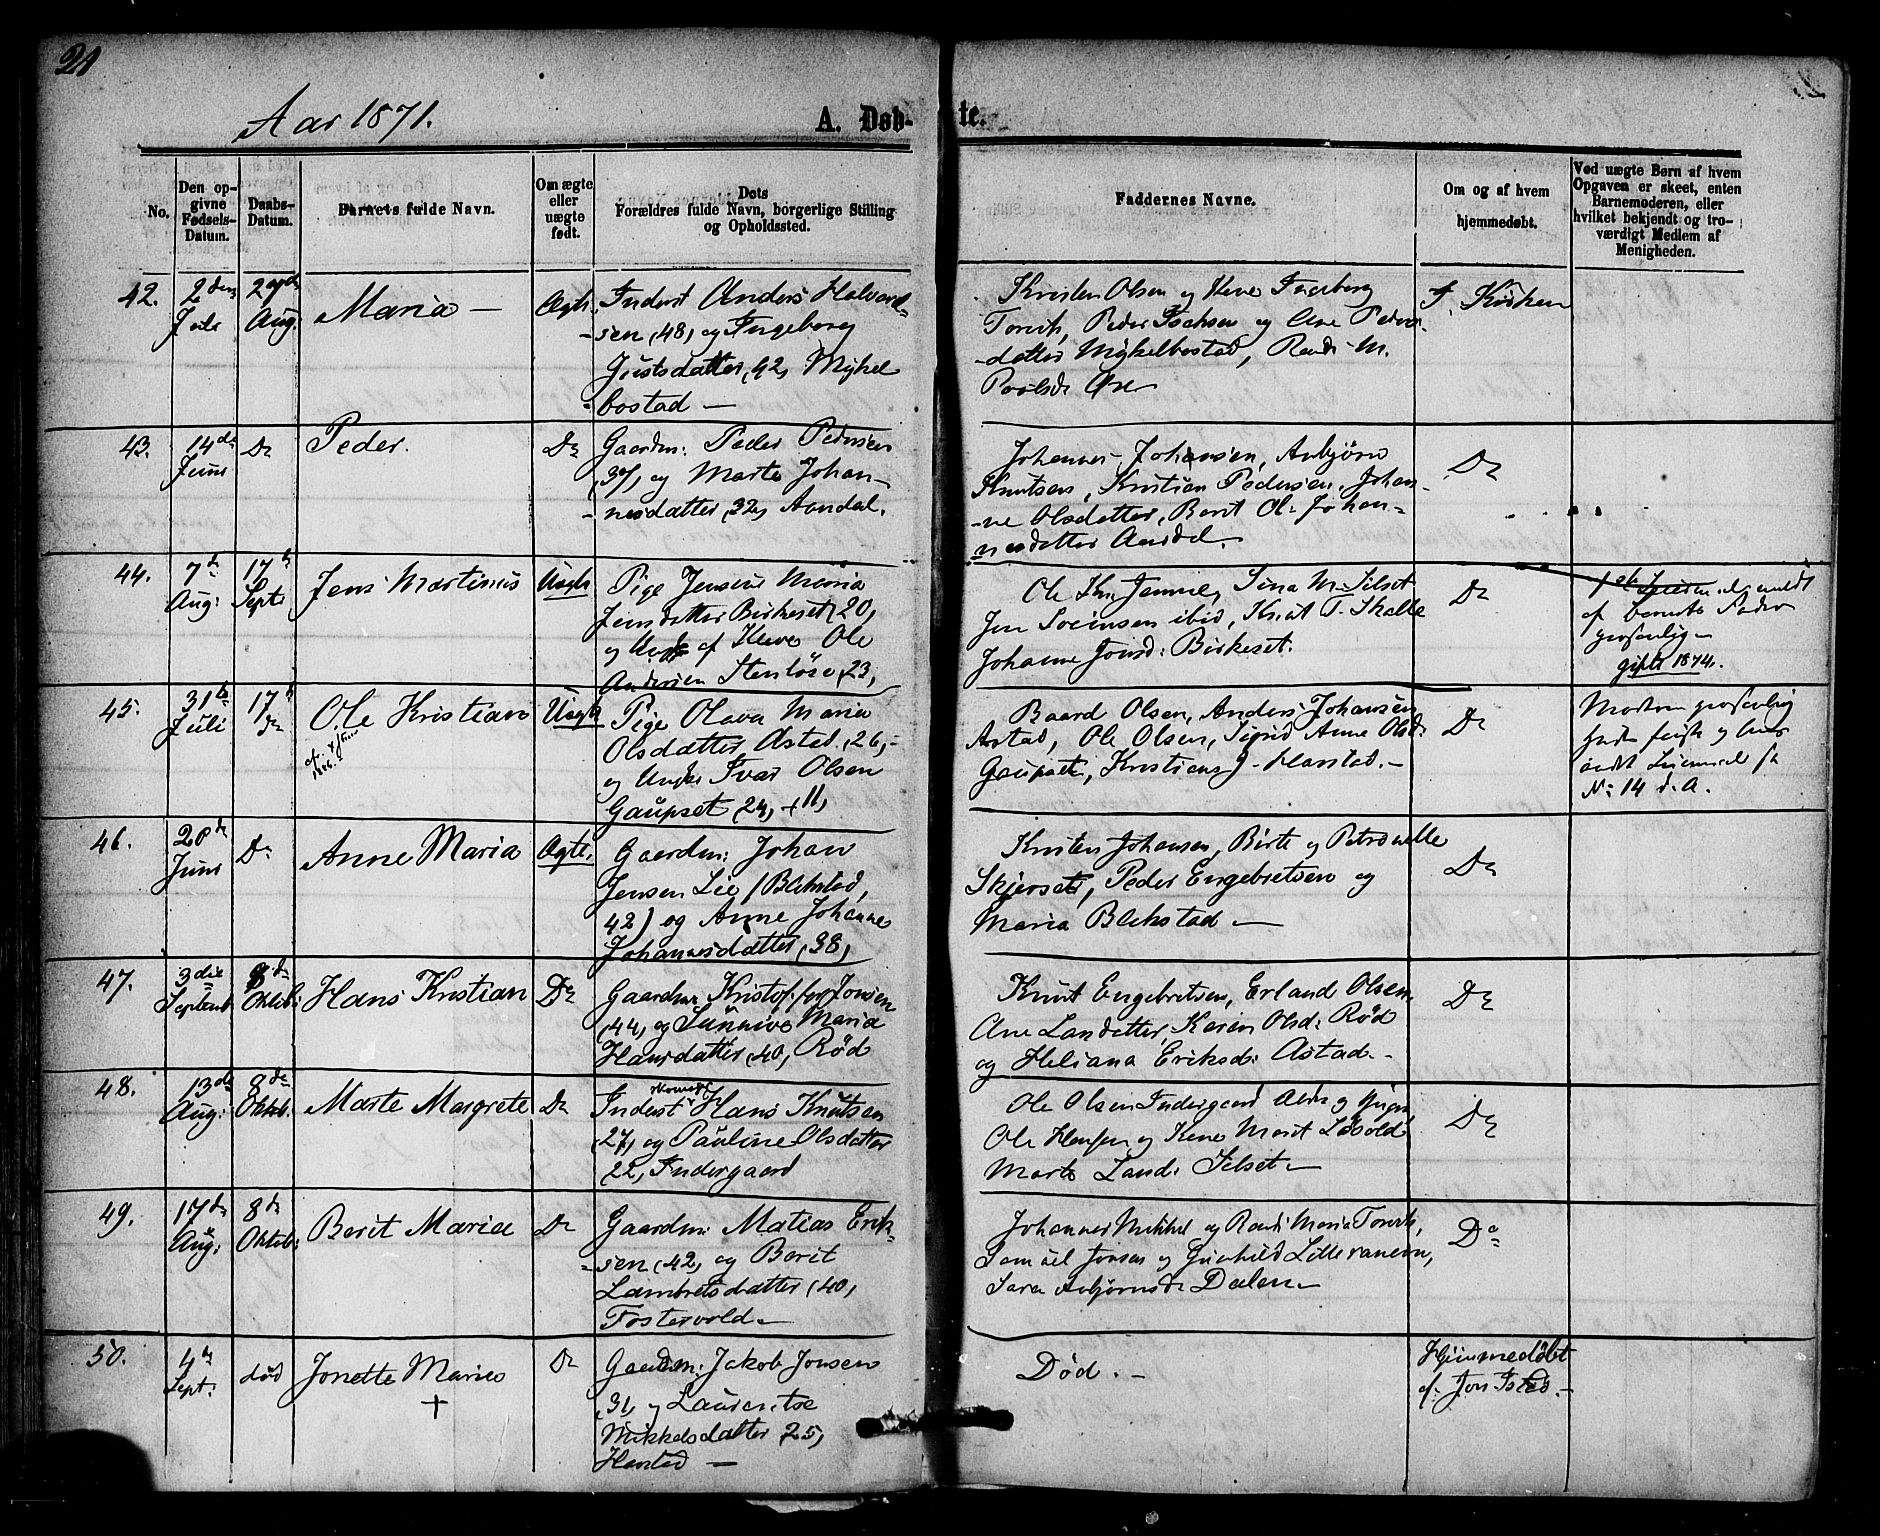 21
Aar 1871.
A. Døb-
te.
No.
Den op-
givne
Fødsels-
Datum.
Daabs-
Datum.
Barnets fulde Navn.
Om ægte
eller
uægte
født.
Dets
Forældres fulde Navn, borgerlige Stilling
og Opholdssted.
Faddernes Navne.
Om og af hvem
hjemmedøbt.
Ved uægte Børn af hvem
Opgaven er skeet, enten
Barnemoderen, eller
hvilket bekjendt og tro-
værdigt Medlem af
Menigheden.
42.
2den
Juli
Aug.
Maria —
Ægte
Inderst Anders Halvard-
-sen (48, og Ingeborg
Justsdatter, 42, Mykel
bostad —
Kristen Olsen og Kone Ingeborg
Torvik, Peder Isachsen og Ane Peders-
-datter Mykelbostad, Randi M.
Povlsd.
I. Kirken
43.
14de
Juni
Do
Peder.
Do
Gaardm: Peder Pedersen
37, og Marte Johan-
-nesdatter, 32, Aandal.
Johannes Johansen, Anbjørn
Knutsen, Kristian Pedersen, Johan-
-ne Olsdatter, Berit Ol. Johan-
nesdatter
Do
44.
7de
Aug:
17de
Septr
Jens Martinus
Uægte
Pige Jensine Maria
Jensdatter Birkeset, 20,
og Ungk. af Ole
Andersen Stenløse, 23,
Ole Kn. Sina M. Silset
Jen Sørensen ibid, Knut T. Skalle
Johanne Jonsd: Birkeset.
Do
af barnets Fader
personlig —
gifte 1874.
45.
31te
Juli
17de
Do
Ole Kristian
1886.
Uægte
Pige Olava Maria
Olsdatter, Astad, 26,-
og Ungkr Ivar Olsen
Gaupset, 24, + 11,
Baard Olsen, Anders Johansen
Astad, Ole Olsen, Sigrid Anne Olsd:
Gaupset, Kristian J. Harstad. -
Do
Modren personlig
No: 14 d. A.
46.
20de
Juni
Do
Anne Maria
Ægte.
Gaardm: Johan
Jensen Lie / Blekstad,
42) og Anne Johanne
Johannesdatter, 38,
Kristen Johansen, Birte og Petronelle
Skjerset, Peder Engebretsen og
Maria Blekstad —
Do
47.
3die
Septemb
8de
Oktob:
Hans Kristian
Do
Gaardm. Kristoffer Jonsen
44, og Sünnive Maria
Hansdatter, 40, Rød
Knut Engebretsen, Erland Olsen
Ane Larsdatter, Karen Olsd: Rød
og Heliana Eriksd: Astad. -
Do
48.
13de
Aug:
8de
Oktob.
Marte Margrete
Do
Inderst Hans Knutsen
27, og Pauline Olsdatter
22, Indergaard
Ole Olsen Indergaard
Ole Hansen og Kone Marit
Marte Larsd: Silset —
Do
49.
17de
Aug:
8de
Oktob:
Berit Maria
Do
Gaardm: Matias Erik-
-sen (42, og Berit
Lambretsdatter (40,
Fostervold. -
Johannes Mikkel og Randi Maria Torvik,
Samuel Jonsen og Gunhild Lillevanevn,
Sara Anbjørnsd Dalen. -
Do
50.
4de
Sept:
død
Jonette Marie
+
Do
Gaardm: Jakob Jonsen
31, og Lauritse
Mikkelsdatter 25,
Harstad —
Død. -
Hjemmedøbt
af: Jon Istad. -